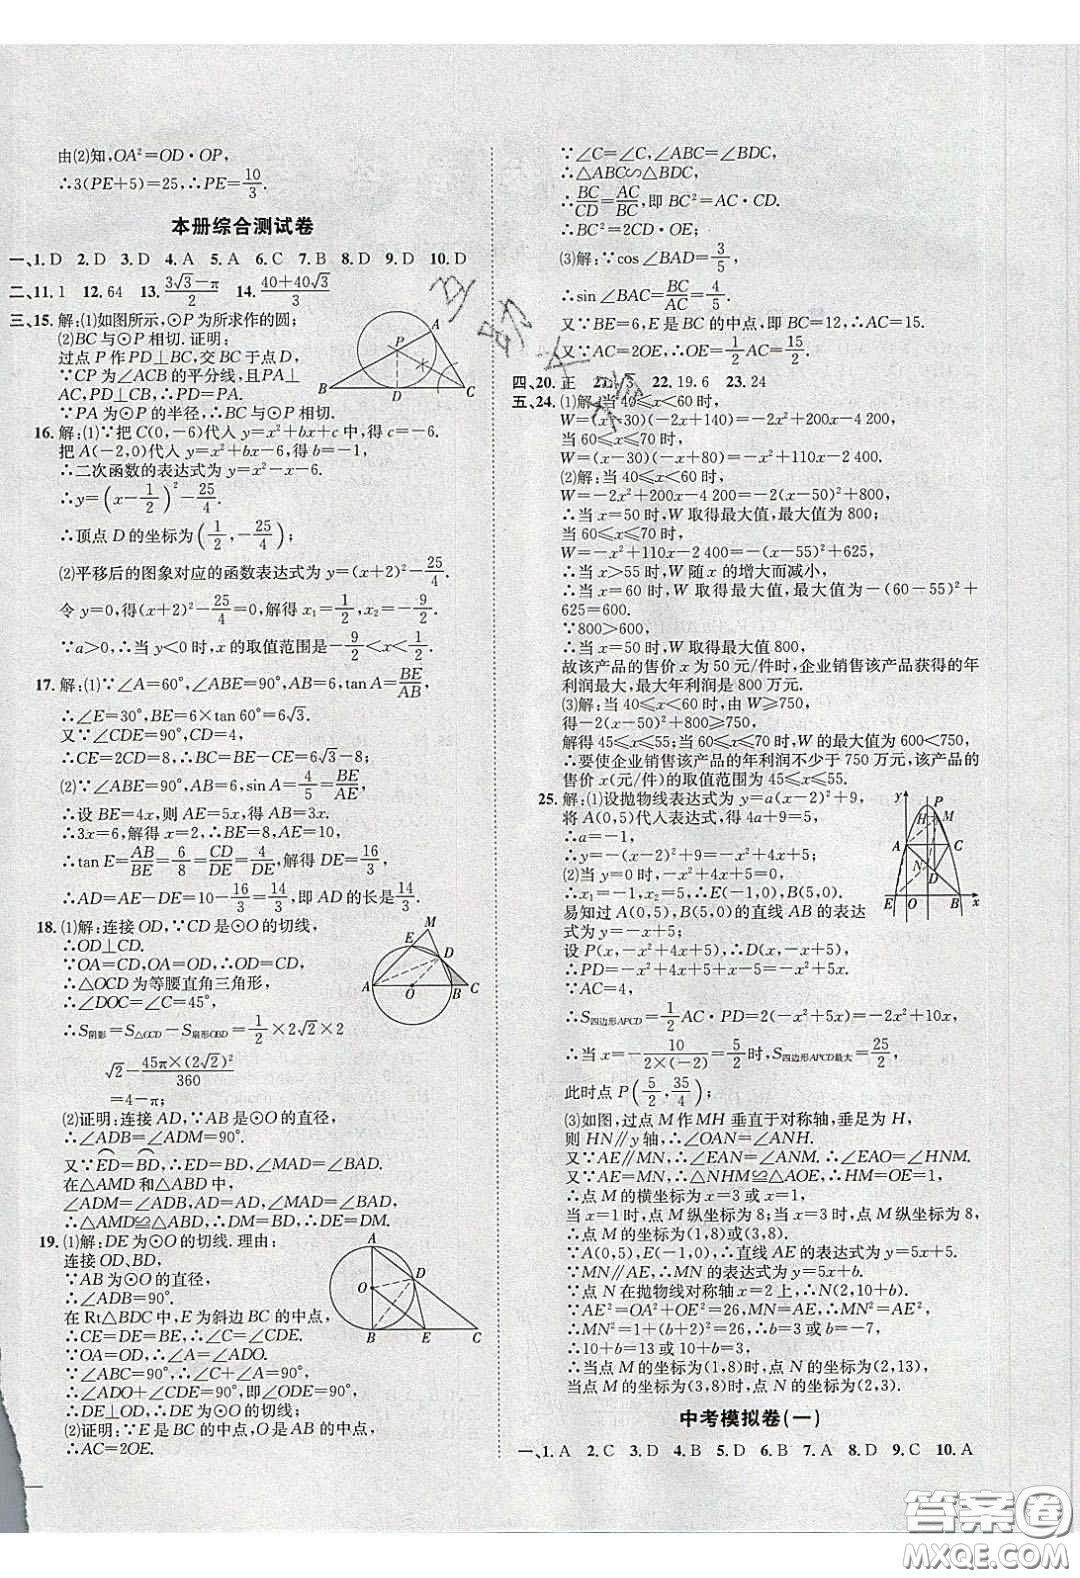 由(2)知,OA²=OD·OP,
∴3(PE+5)=25,∴PE=10/3.
本册综合测试卷
一、1. D 2. D 3. D 4. A 5. A 6. C 7. B 8. D 9. D 10. D
二、11. 1 12. 64 13. (3√3-π)/2 14. (40+40√3)/3
三、15. 解:(1)如图所示,⊙P为所求作的圆;
(2)BC与⊙P相切.证明:
过点P作PD⊥BC,交BC于点D,
∵CP为∠ACB的平分线,且PA⊥
AC,PD⊥CB,∴PD=PA.
∵PA为⊙P的半径,∴BC与⊙P相切.
A
P
B
D
C
16. 解:(1)∵把C(0,-6)代入y=x²+bx+c中,得c=-6.
把A(-2,0)代入y=x²+bx-6,得b=-1,
∴二次函数的表达式为y=x²-x-6.
∴y=(x-1/2)²-25/4.
∴顶点D的坐标为(1/2,-25/4);
(2)平移后的图象对应的函数表达式为y=(x+2)²-25/4.
令y=0,得(x+2)²-25/4=0,解得x₁=1/2,x₂=-9/2.
∵a>0,∴当y<0时,x的取值范围是-9/2<x<1/2.
17. 解:(1)∵∠A=60°,∠ABE=90°,AB=6,tan A=BE/AB,
∴∠E=30°,BE=6×tan 60°=6√3.
又∵∠CDE=90°,CD=4,
∴CE=2CD=8,∴BC=BE-CE=6√3-8;
(2)∵∠ABE=90°,AB=6,sin A=4/5=BE/AE,
∴设BE=4x,则AE=5x,得AB=3x.
∴3x=6,解得x=2,∴BE=8,AE=10,
∴tan E=AB/BE=6/8=CD/DE=4/DE,解得DE=16/3,
∴AD=AE-DE=10-16/3=14/3,即AD的长是14/3.
18. (1)解:连接OD,∵CD是⊙O的切线,
∴OD⊥CD.
∵OA=CD,OA=OD,∴OD=CD,
∴△OCD为等腰直角三角形,
∴∠DOC=∠C=45°.
∴S阴影=S△OCD-S扇形OBD=1/2×2√2×2
√2-45π×(2√2)²/360
=4-π;
M
E
D
A
O
B
C
(2)证明:连接AD,∵AB是⊙O的直径,
∴∠ADB=∠ADM=90°.
又∵ED⌒=BD⌒,∴ED=BD,∠MAD=∠BAD.
在△AMD和△ABD中,
∠ADM=∠ADB,AD=AD,∠MAD=∠BAD,
∴△AMD≌△ABD,∴DM=BD,∴DE=DM.
19. (1)解:DE为⊙O的切线.理由:
连接OD,BD,
∵AB为⊙O的直径,
∴∠ADB=90°.
在Rt△BDC中,E为斜边BC的中点,
∴CE=DE=BE,∴∠C=∠CDE.
∵OA=OD,∴∠A=∠ADO.
∵∠ABC=90°,∴∠C+∠A=90°,
∴∠ADO+∠CDE=90°,即∠ODE=90°.
∴DE⊥OD,∴DE为⊙O的切线;
(2)证明:∵E是BC的中点,O是AB的中点,
∴AC=2OE.
A
D
O
B
E
C
∵∠C=∠C,∠ABC=∠BDC,
∴△ABC∽△BDC,
∴BC/CD=AC/BC,即BC²=AC·CD.
∴BC²=2CD·OE;
(3)解:∵cos∠BAD=3/5,
∴sin∠BAC=BC/AC=4/5.
又∵BE=6,E是BC的中点,即BC=12,∴AC=15.
又∵AC=2OE,∴OE=1/2AC=15/2.
四、20. 正 22. 19.6 23. 24
五、24. (1)解:当40≤x<60时,
W=(x-30)(-2x+140)=-2x²+200x-4 200.
当60≤x≤70时,
W=(x-30)(-x+80)=-x²+110x-2 400.
(2)解:当40≤x<60时,
W=-2x²+200x-4 200=-2(x-50)²+800,
∴当x=50时,W取得最大值,最大值为800;
当60≤x≤70时,
W=-x²+110x-2 400=-(x-55)²+625,
∴当x>55时,W随x的增大而减小,
∴当x=60时,W取得最大值,最大值为-(60-55)²+
625=600.
∵800>600,
∴当x=50时,W取得最大值800,
故该产品的售价x为50元/件时,企业销售该产品获得的年
利润最大,最大年利润是800万元.
(3)解:当40≤x<60时,由W≥750,
得-2(x-50)²+800≥750,
解得45≤x≤55;当60≤x≤70时,W的最大值为600<750,
∴要使企业销售该产品的年利润不少于750万元,该产品的
售价x(元/件)的取值范围为45≤x≤55.
25. 解:(1)设抛物线表达式为y=a(x-2)²+9,
将A(0,5)代入表达式,得4a+9=5,
∴a=-1,
∴y=-(x-2)²+9=-x²+4x+5;
(2)当y=0时,-x²+4x+5=0,
∴x₁=-1,x₂=5,∴E(-1,0),B(5,0).
易知过A(0,5),B(5,0)的直线AB的表达
式为y=-x+5;
设P(x,-x²+4x+5),∴D(x,-x+5),
∴PD=-x²+4x+5+x-5=-x²+5x.
∵AC=4,
∴S四边形APCD=1/2AC·PD=2(-x²+5x)=-2x²+10x,
∴当x=-10/(2×(-2))=5/2时,S四边形APCD最大=25/2,
此时点P(5/2,35/4);
y
P
H
M
A
C
N
D
E
O
B
x
(3)如图,过点M作MH垂直于对称轴,垂足为H,
则HN∥y轴,∴∠OAN=∠ANH.
又∵AE∥MN,∴∠EAN=∠ANM,∴∠EAO=∠HNM.
又∵AE=MN,∴△NHM≌△AOE,∴HM=OE=1,
∴点M的横坐标为x=3或x=1,
当x=1时,点M纵坐标为8;当x=3时,点M纵坐标为8,
∴点M的坐标为(1,8)或(3,8).
∵A(0,5),E(-1,0),∴直线AE的表达式为y=5x+5;
∵MN∥AE,∴MN的表达式为y=5x+b,
∵点N在抛物线对称轴x=2上,∴N(2,10+b);
∵AE²=OA²+OE²=26,∵MN=AE,∴MN²=AE²,
∴MN²=1+(b+2)²=26,∴b=3或b=-7,
∴10+b=13或10+b=3,
∴当点M的坐标为(1,8)时,点N的坐标为(2,13),
当点M的坐标为(3,8)时,点N的坐标为(2,3).
中考模拟卷(一)
一、1. A 2. C 3. D 4. B 5. D 6. B 7. A 8. D 9. C 10. A
答案圈
MXQE.COM